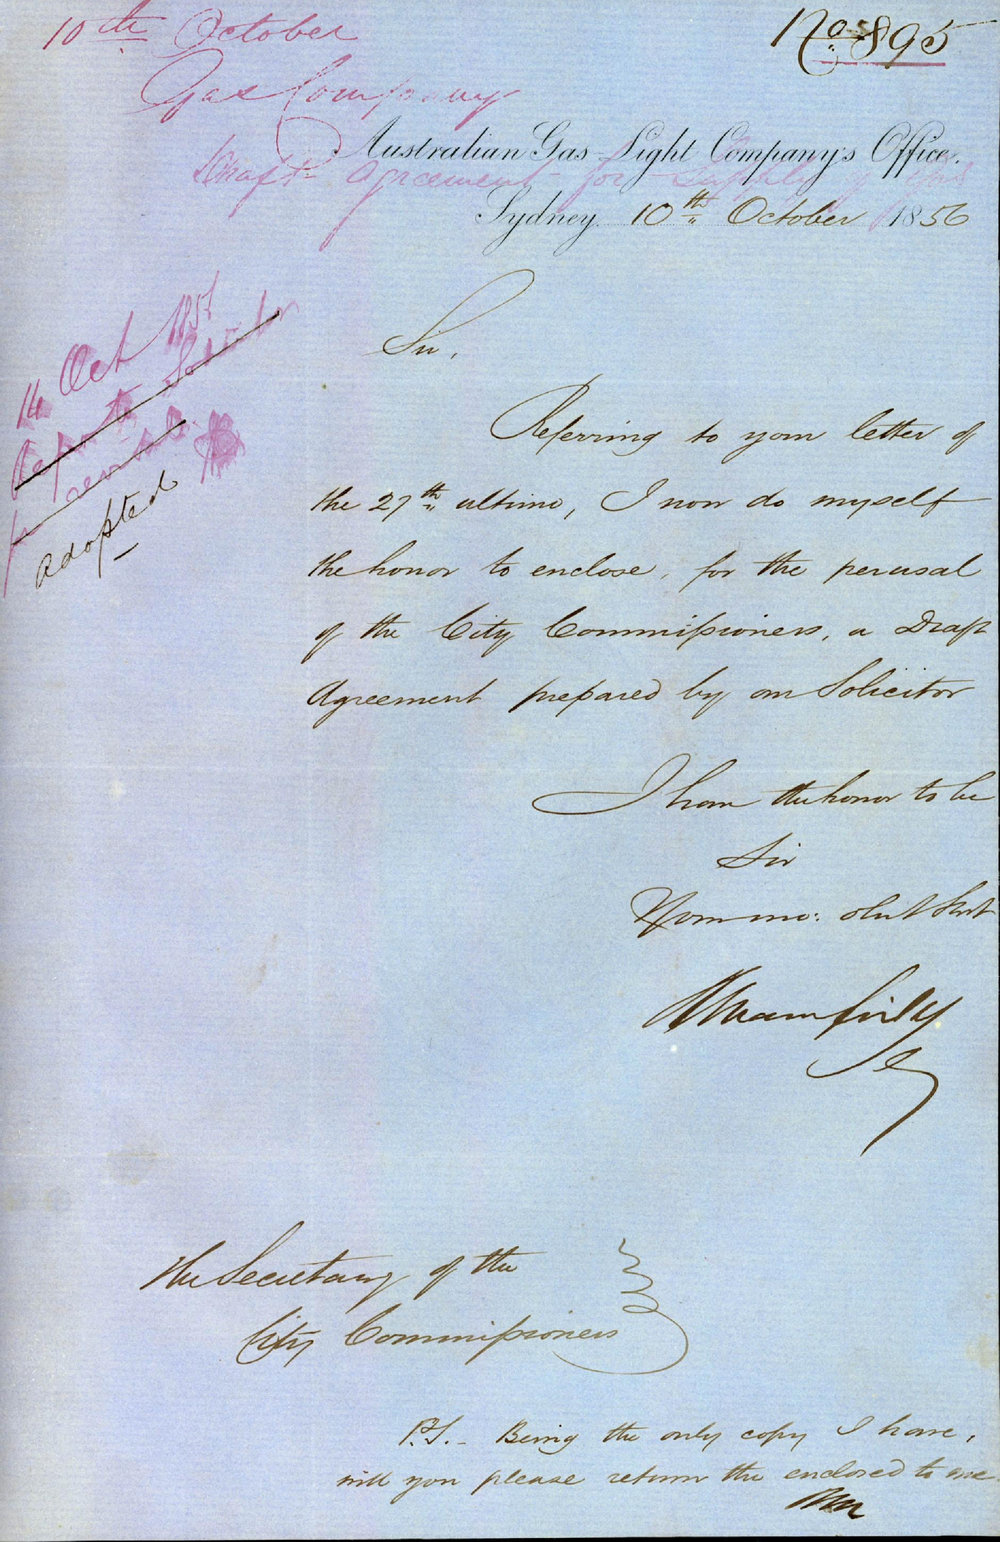 10th October
No 895
Gas Company
Australian Gas Light Company's Office.
Draft Agreement for Supply of Gas
Sydney 10th October 1856
14 Oct 185
Refer to Solicitor
for perusal
adopted
Sir,
Referring to your letter of
the 27th ultimo, I now do myself
the honor to enclose, for the perusal
of the City Commissioners, a Draft
Agreement prepared by our Solicitor
I have the honor to be
Sir
Your mo: obt Servt
Sy
The Secretary of the
City Commissioners
P.S. - Being the only copy I have,
will you please return the enclosed to me
RM